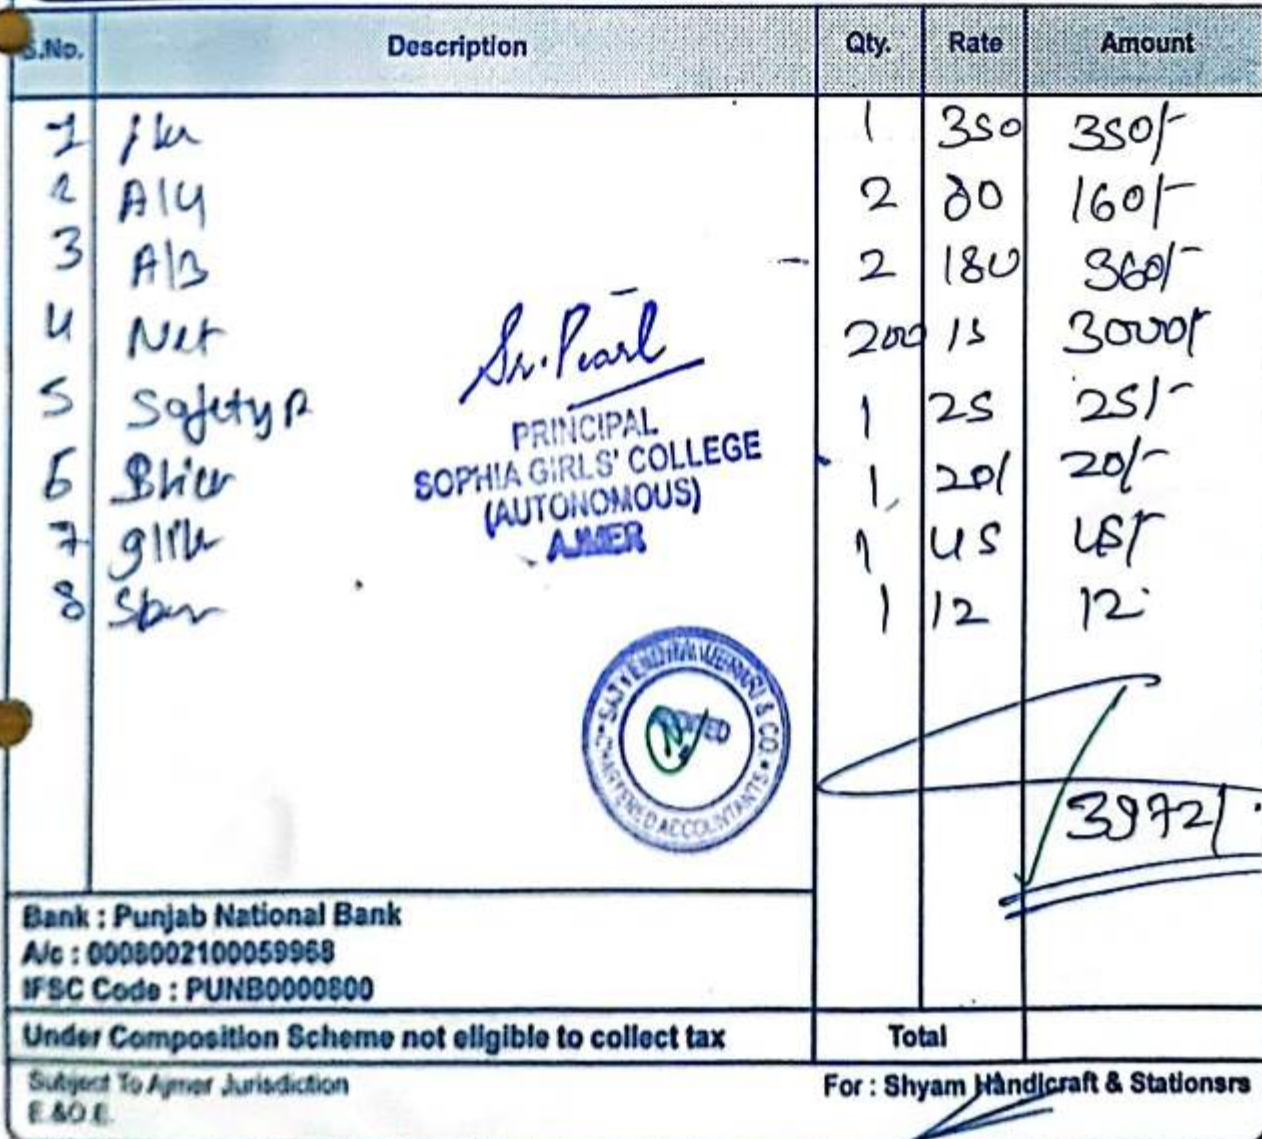 S.No. Description Qty. Rate Amount
1 1 350 350/-
2 A14 2 80 160/-
3 A13 2 180 360/-
4 Net 200 15 3000/-
5 Safety P 1 25 25/-
6 1 20/ 20/-
7 1 45 45/-
8 1 12 12
Sr. Pearl
PRINCIPAL
SOPHIA GIRLS' COLLEGE
(AUTONOMOUS)
AJMER
& CO. CHARTERED ACCOUNTANTS
3972/
Bank : Punjab National Bank
A/c : 0008002100059968
IFSC Code : PUNB0000800
Under Composition Scheme not eligible to collect tax Total
Subject To Ajmer Jurisdiction
E.&O.E.
For : Shyam Handicraft & Stationsrs